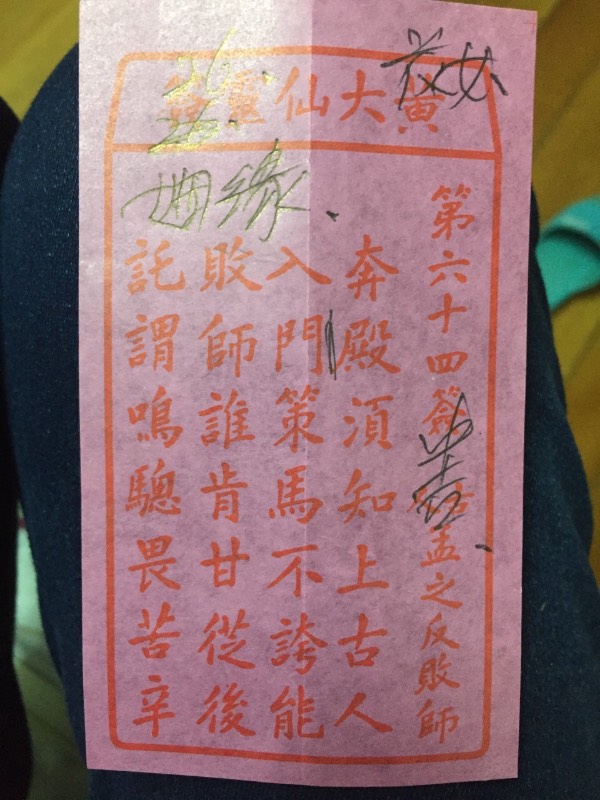 黃大仙靈籤
姻緣.
第六十四簽 中吉. 孟之反敗師
奔殿湏知上古人
入門策馬不誇能
敗師誰肯甘從後
託謂鳴驄畏苦辛